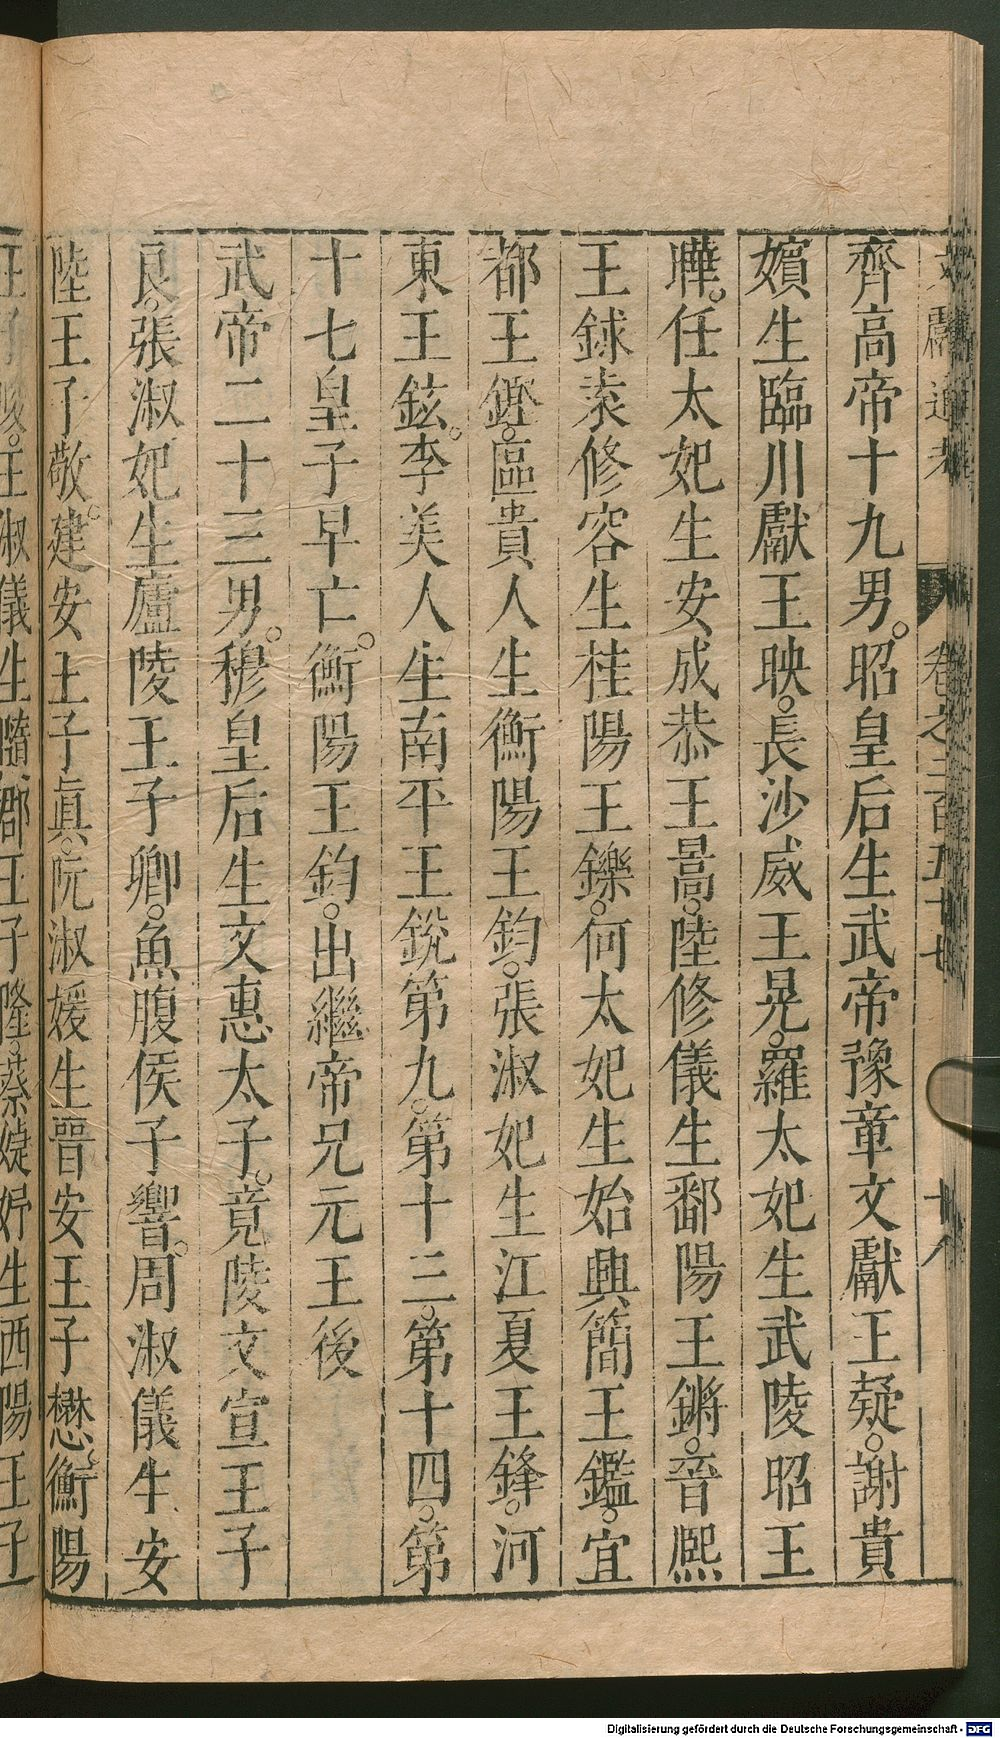 文獻通考 卷之二百五十七 十八
齊高帝十九男。昭皇后生武帝豫章文獻王嶷。謝貴
嬪生臨川獻王映。長沙威王晃。羅太妃生武陵昭王
曄。任太妃生安成恭王暠。陸修儀生鄱陽王鏘。晉熙
王銶。袁修容生桂陽王鑠。何太妃生始興簡王鑑。宜
都王鏗。區貴人生衡陽王鈞。張淑妃生江夏王鋒。河
東王鉉。李美人生南平王銳。第九。第十三。第十四。第
十七皇子早亡。衡陽王鈞。出繼帝兄元王後
武帝二十三男。穆皇后生文惠太子。竟陵文宣王子
良。張淑妃生廬陵王子卿。魚腹侯子響。周淑儀生安
陸王子敬。建安王子眞。阮淑媛生晉安王子懋。衡陽
王子峻。王淑儀生隨郡王子隆。蔡婕妤生西陽王子
Digitalisierung gefördert durch die Deutsche Forschungsgemeinschaft - DFG